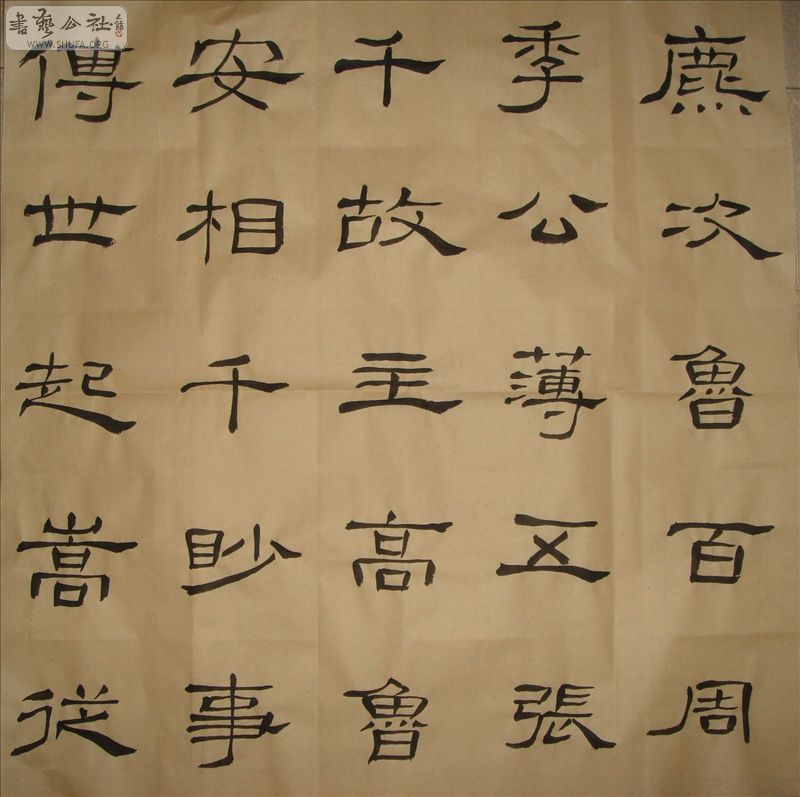 書藝公社
WWW.SHUFA.ORG
麃次魯百周
季公薄五張
千故主高魯
安相千眇事
傳世起嵩従